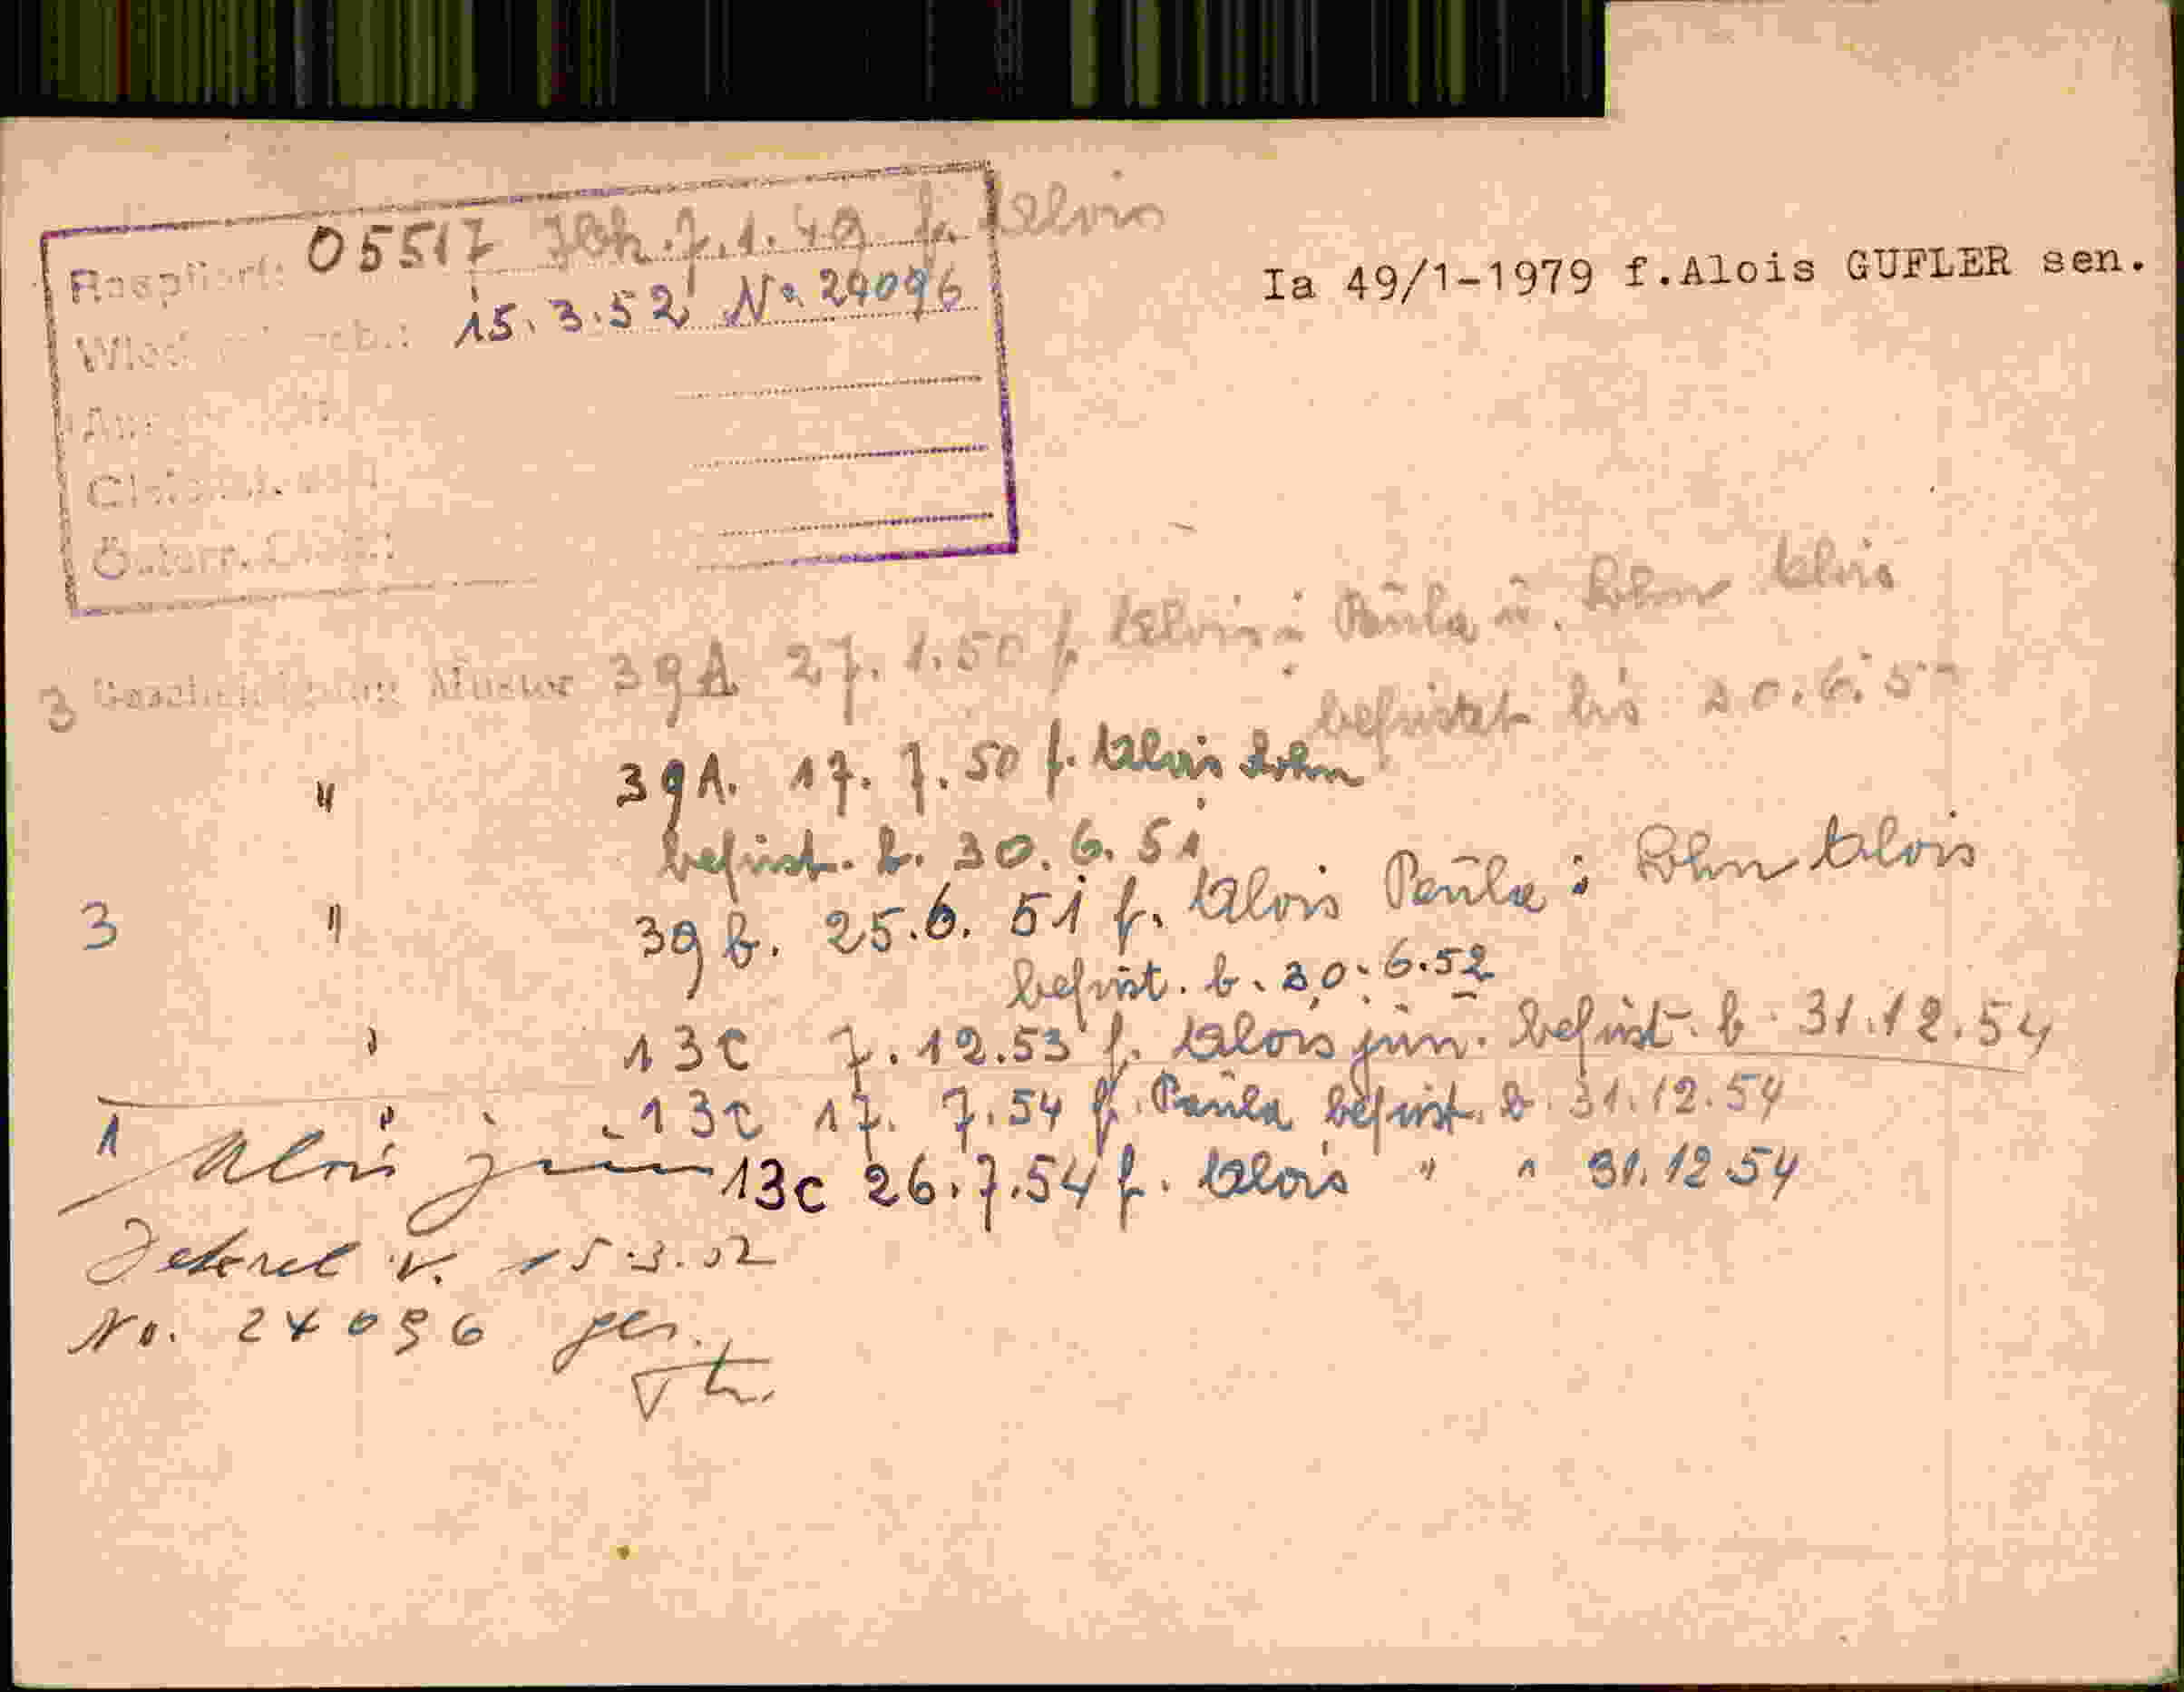 05517 Ibk. 7.1.49 f. Alois
15.3.52 No. 24096
Ia 49/1-1979 f.Alois GUFLER sen.
Österr.
3 Bescheinigung Muster 39A 27.1.50 f. Alois Paula u. Sohn Alois
befristet bis 30.6.50
" 39A. 17.7.50 f. Alois Sohn
befrist. b. 30.6.51
3 " 39 b. 25.6.51 f. Alois Paula Sohn Alois
befrist. b. 30.6.52
" 13c 7.12.53 f. Alois jun. befrist. b. 31.12.54
1 " 13c 17. 7.54 f. Paula befrist. b. 31.12.54
Alois jun 13c 26.7.54 f. Alois " " 31.12.54
Dekret v. 15.3.52
No. 24096 ges.